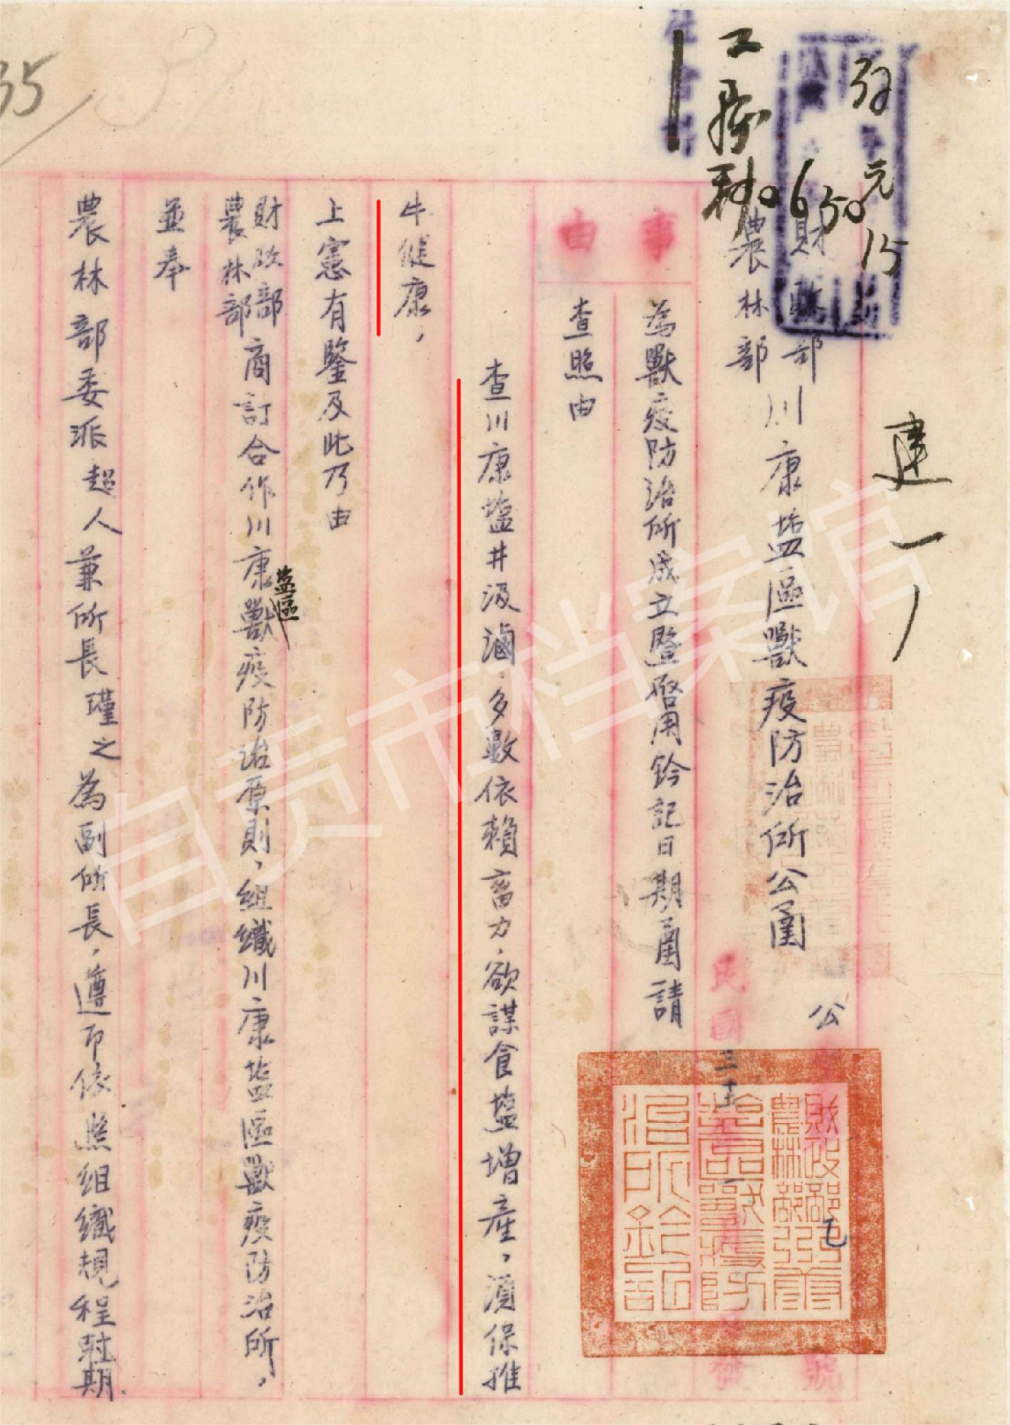 財政部
農林部
川康塩區獸疫防治所公函
公
民國三十
號
事由
為獸疫防治所成立暨啓用鈐記日期函請
查照由
查川康塩井汲滷，多數依賴畜力，欲謀食塩增產，須保推
牛健康，
上憲有鑒及此乃由
財政部
農林部
商訂合作川康塩區獸疫防治原則，組織川康塩區獸疫防治所，
並奉
農林部委派超人兼所長瑾之為副所長，遵即依照組織規程尅期
財政部
農林部川康
塩區獸疫防
治所鈐記
建一
35
自贡市档案馆